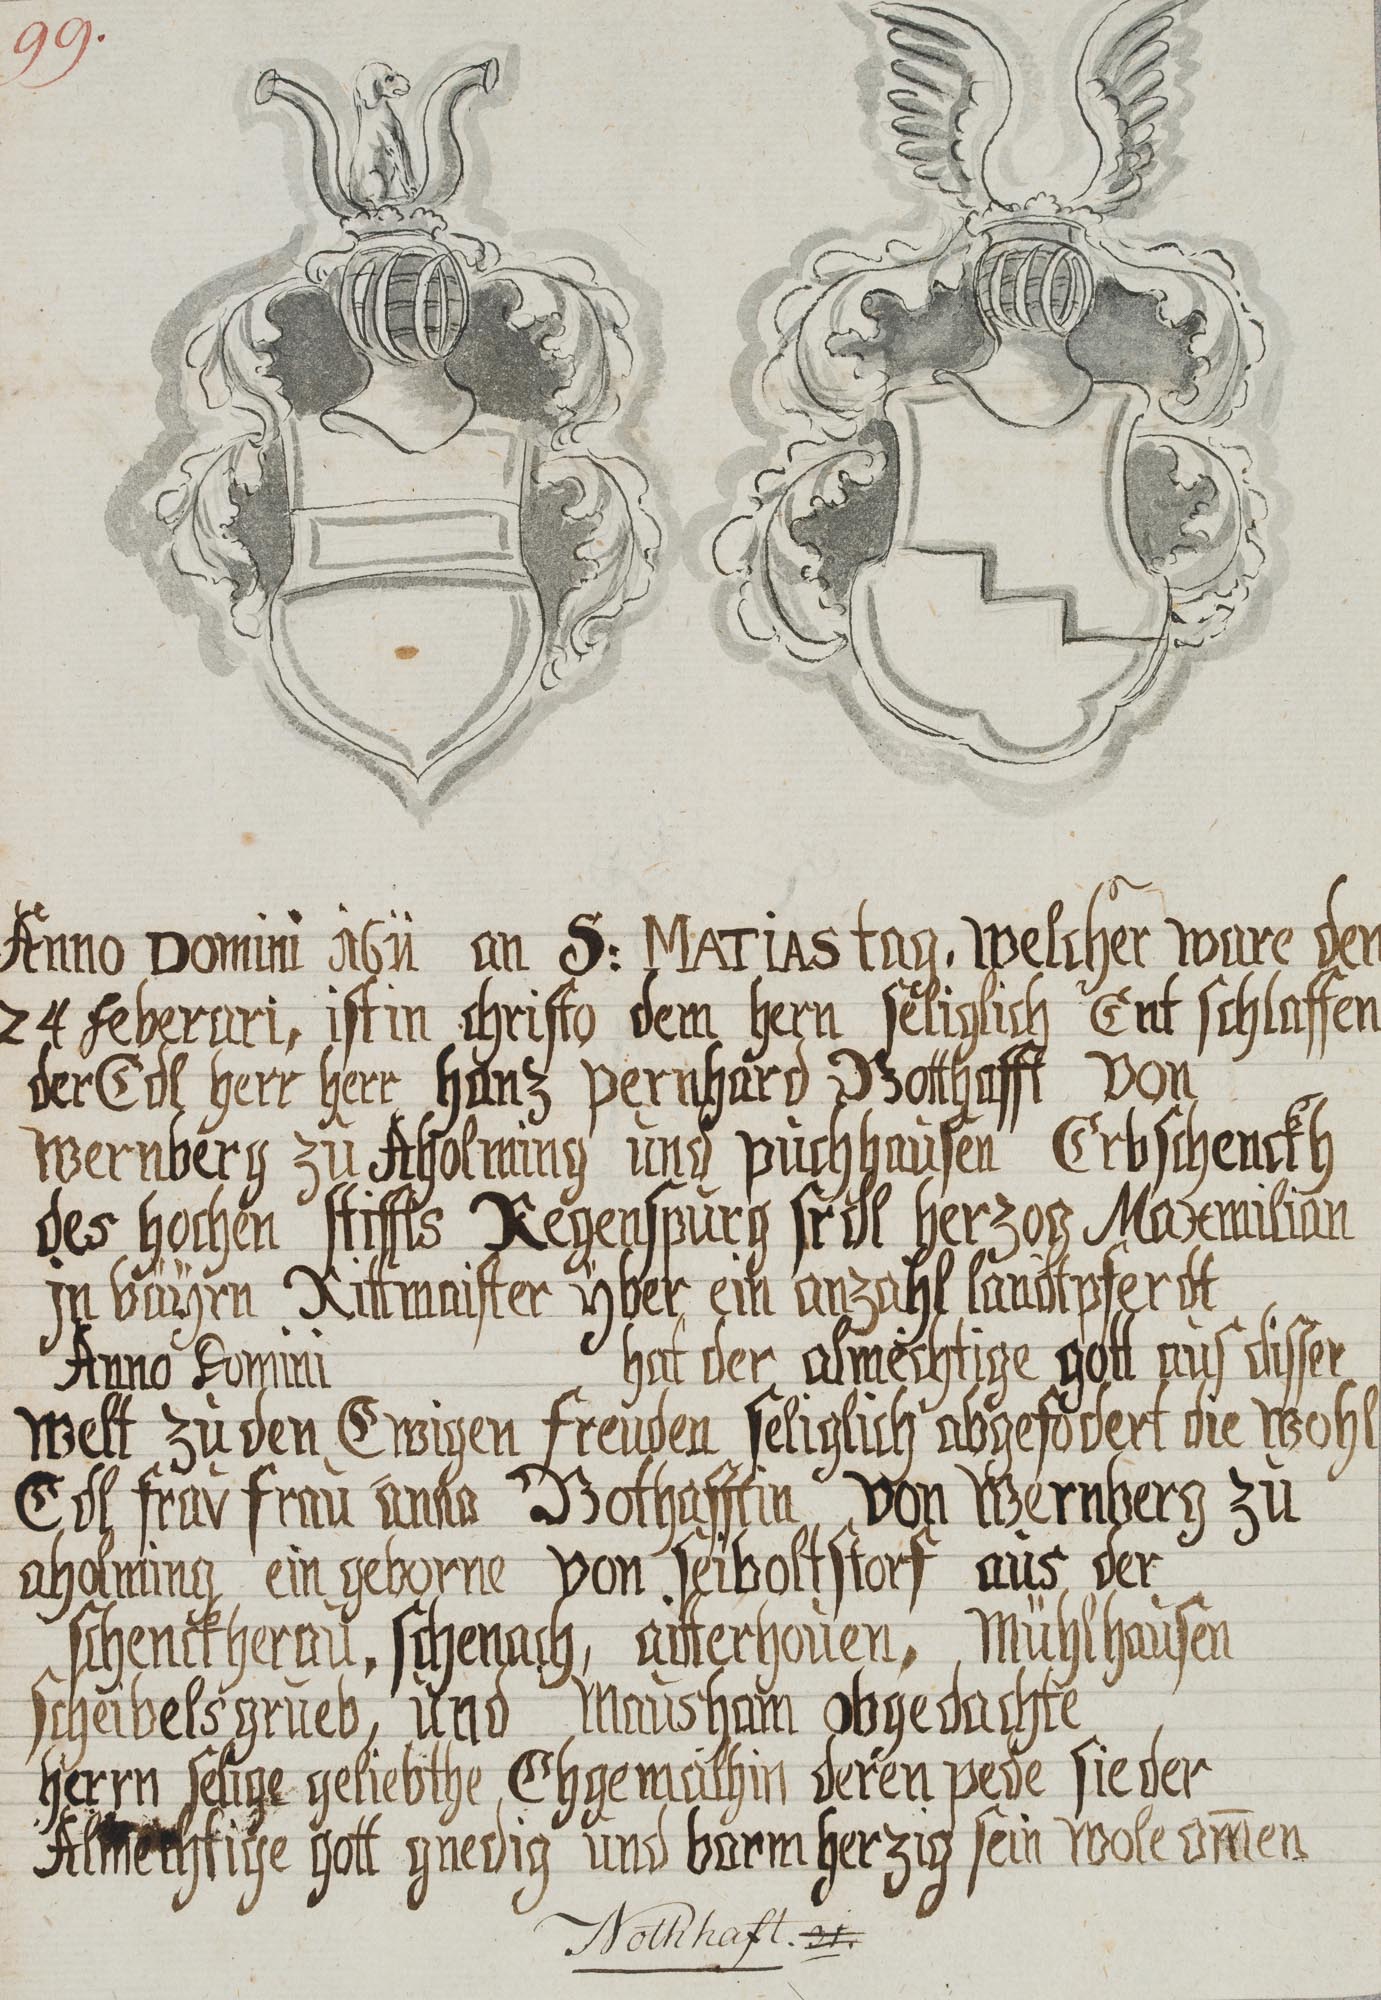 99.
Anno Domini 1611 an S: MATIAS tag. welcher ware den
24 feberari, ist in christo dem hern seliglich Entschlaffen
der Edl herr herr hanz pernhard Notthafft von
wernberg zu Aholming und puchhausen Erbschenckh
des hochen stiffts Regenspurg frdl herzog Maxmilian
jn bäyrn Rittmaister ÿber ein anzahl landtpferdt
Anno Domini hat der almechtige gott aus disser
welt zu den Ewigen freuden seliglich abgefodert die wohl
Edl frav frau anna Nothafftin von wernberg zu
aholming ein geborne von seiboltstorf aus der
schenckherau, schenach, aitterhouen, Mühlhausen
scheibelsgrueb, und Mausham obgedachte
herrn selige geliebthe Ehgemalhin deren pede sie der
Almechtige gott gnedig und barmherzig sein wole am̅en
Nothhaft. 31.